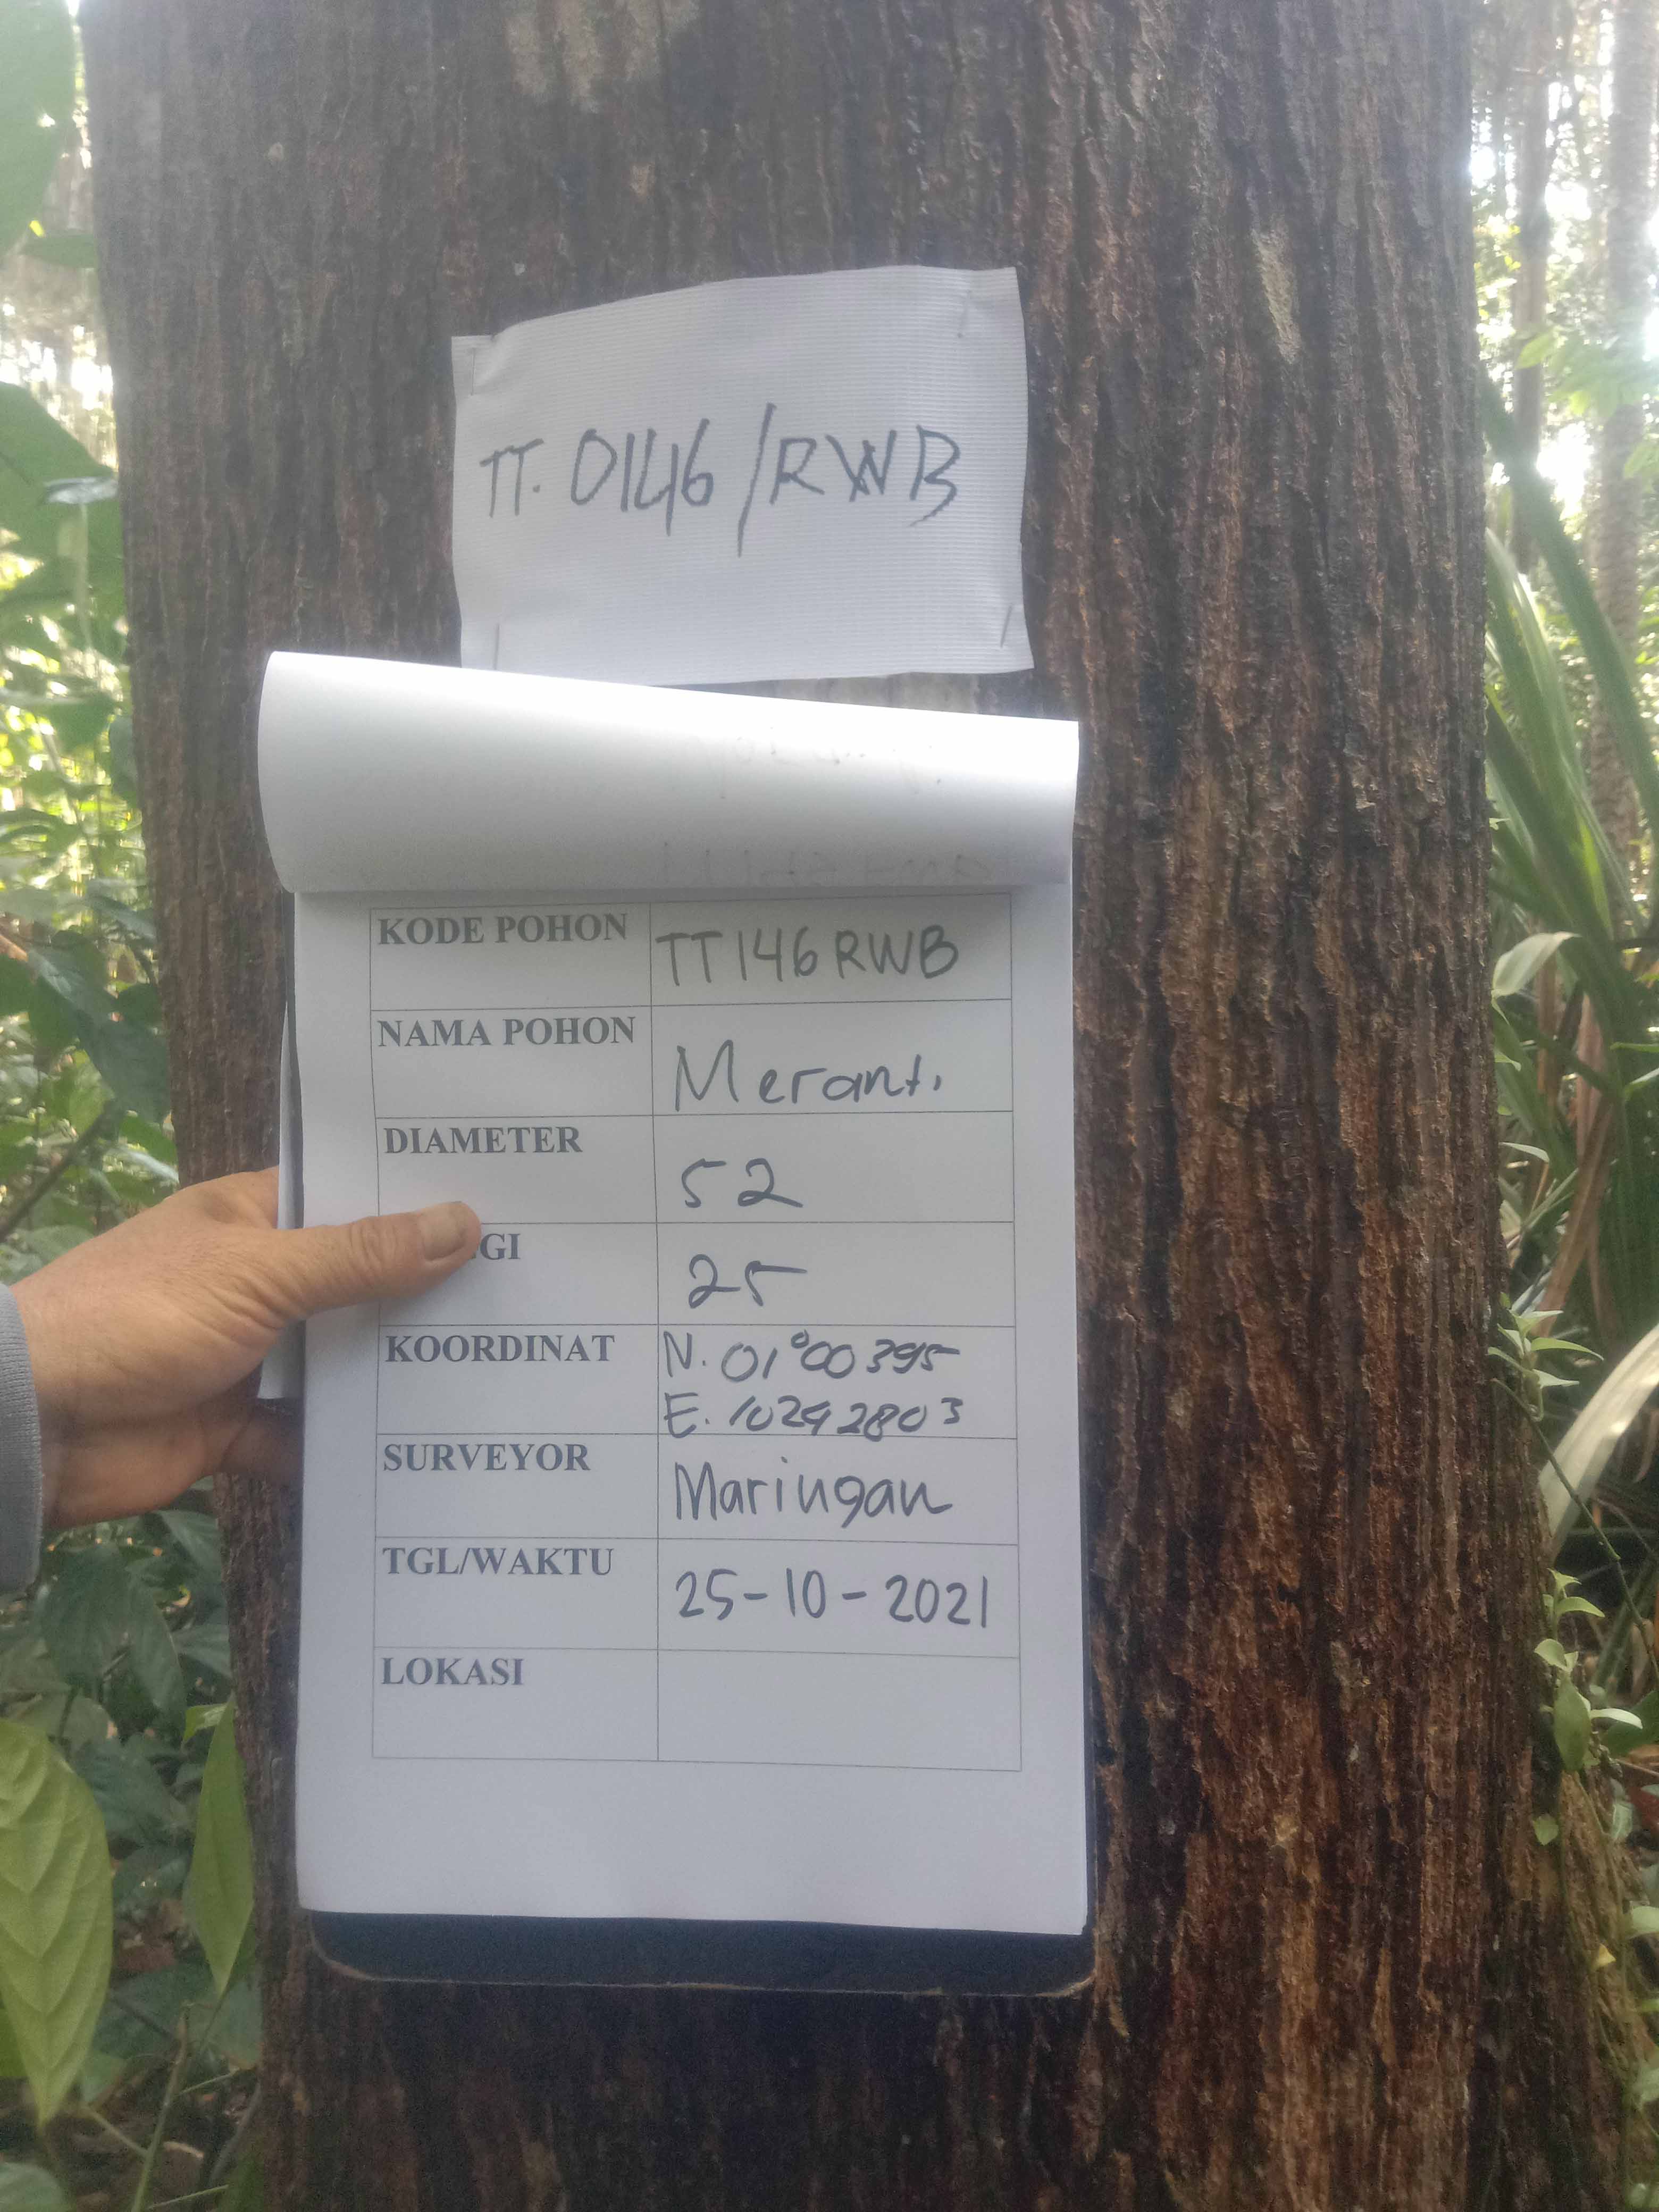 TT. 0146/RWB
KODE POHON TT146RWB
NAMA POHON Meranti
DIAMETER 52
GI 25
KOORDINAT N. 01°00395
E. 10292803
SURVEYOR Maringan
TGL/WAKTU 25-10-2021
LOKASI